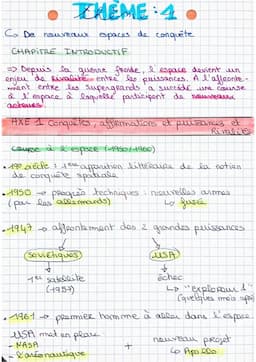 THÈME : 1
↳ De nouveaux espaces de conquête
CHAPITRE INTRODUCTIF
⇒ Depuis la guerre froide, l'espace devient un
enjeu de rivalité entre les puissances. A l'affronte-
ment entre les supergrands a succédé une course
à l'espace à laquelle participent de nouveaux
acteurs.
AXE 1 Conquêtes, affirmations et puissances et
Rivalités
course à l'espace (-1950/1960)
• 19e siècle : 1ère apparition littéraire de la notion
de conquête spatiale
• 1950 → progrès techniques : nouvelles armes
(par les allemands) ↳ fusée
• 1947 → affrontement des 2 grandes puissances
Soviétiques USA
1er satellite échec
(1957) ↳ "Explorer 1"
(quelques mois après)
• 1961 → premier homme à aller dans l'espace
USA met en place
- NASA + nouveau projet
- l'aéronautique ↳ Apollo